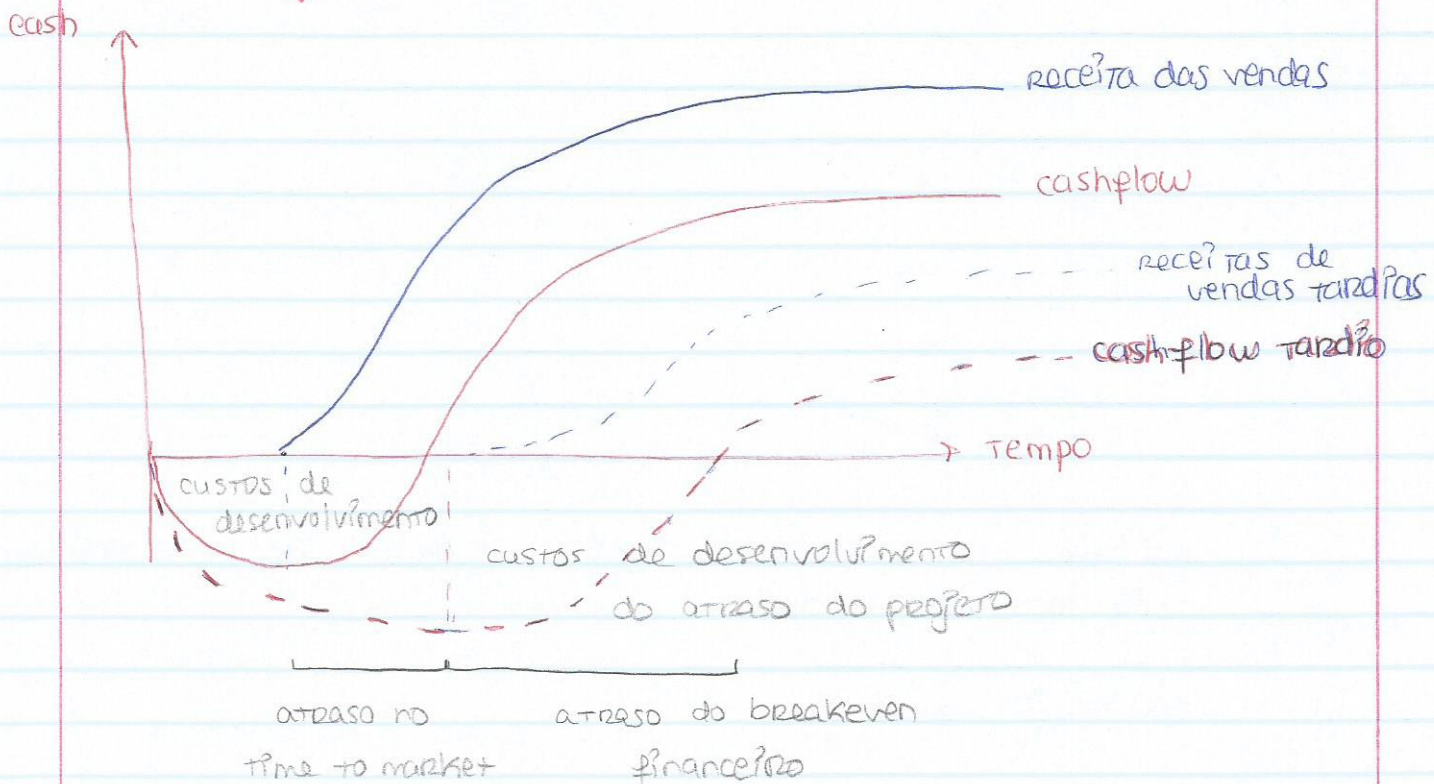 cash
receita das vendas
cashflow
receitas de
vendas tardias
cashflow tardio
Tempo
custos de
desenvolvimento
custos de desenvolvimento
do atraso do projeto
atraso no
time to market
atraso do breakeven
financeiro